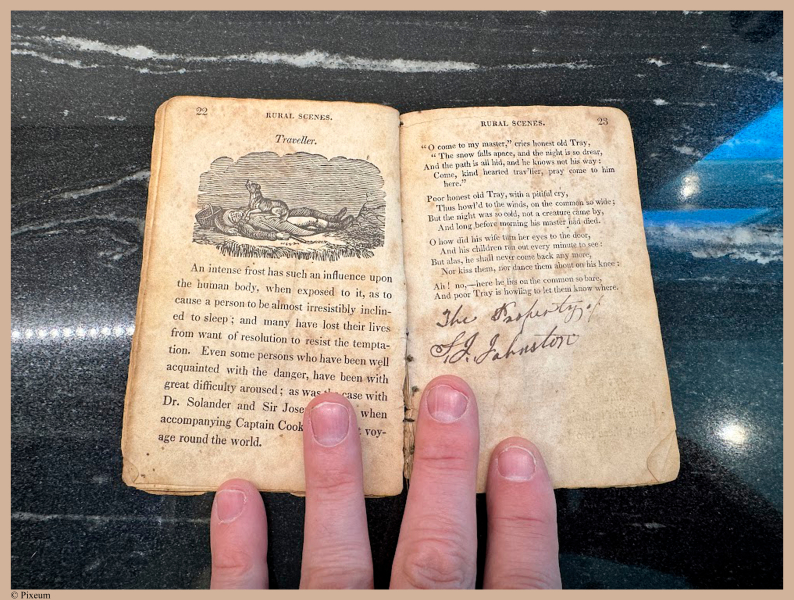 22
RURAL SCENES.
Traveller.
An intense frost has such an influence upon
the human body, when exposed to it, as to
cause a person to be almost irresistibly inclin-
ed to sleep; and many have lost their lives
from want of resolution to resist the tempta-
tion. Even some persons who have been well
acquainted with the danger, have been with
great difficulty aroused; as was the case with
Dr. Solander and Sir Jose when
accompanying Captain Cook voy-
age round the world.
RURAL SCENES.
23
"O come to my master," cries honest old Tray,
"The snow falls apace, and the night is so drear,
And the path is all hid, and he knows not his way:
Come, kind hearted trav'ller, pray come to him
here."
Poor honest old Tray, with a pitiful cry,
Thus howl'd to the winds, on the common so wide;
But the night was so cold, not a creature came by,
And long before morning his master had died.
O how did his wife turn her eyes to the door,
And his children run out every minute to see:
But alas, he shall never come back any more,
Nor kiss them, nor dance them about on his knee:
Ah! no,—here he lies on the common so bare,
And poor Tray is howling to let them know where.
The Property of
S. J. Johnston
© Pixeum